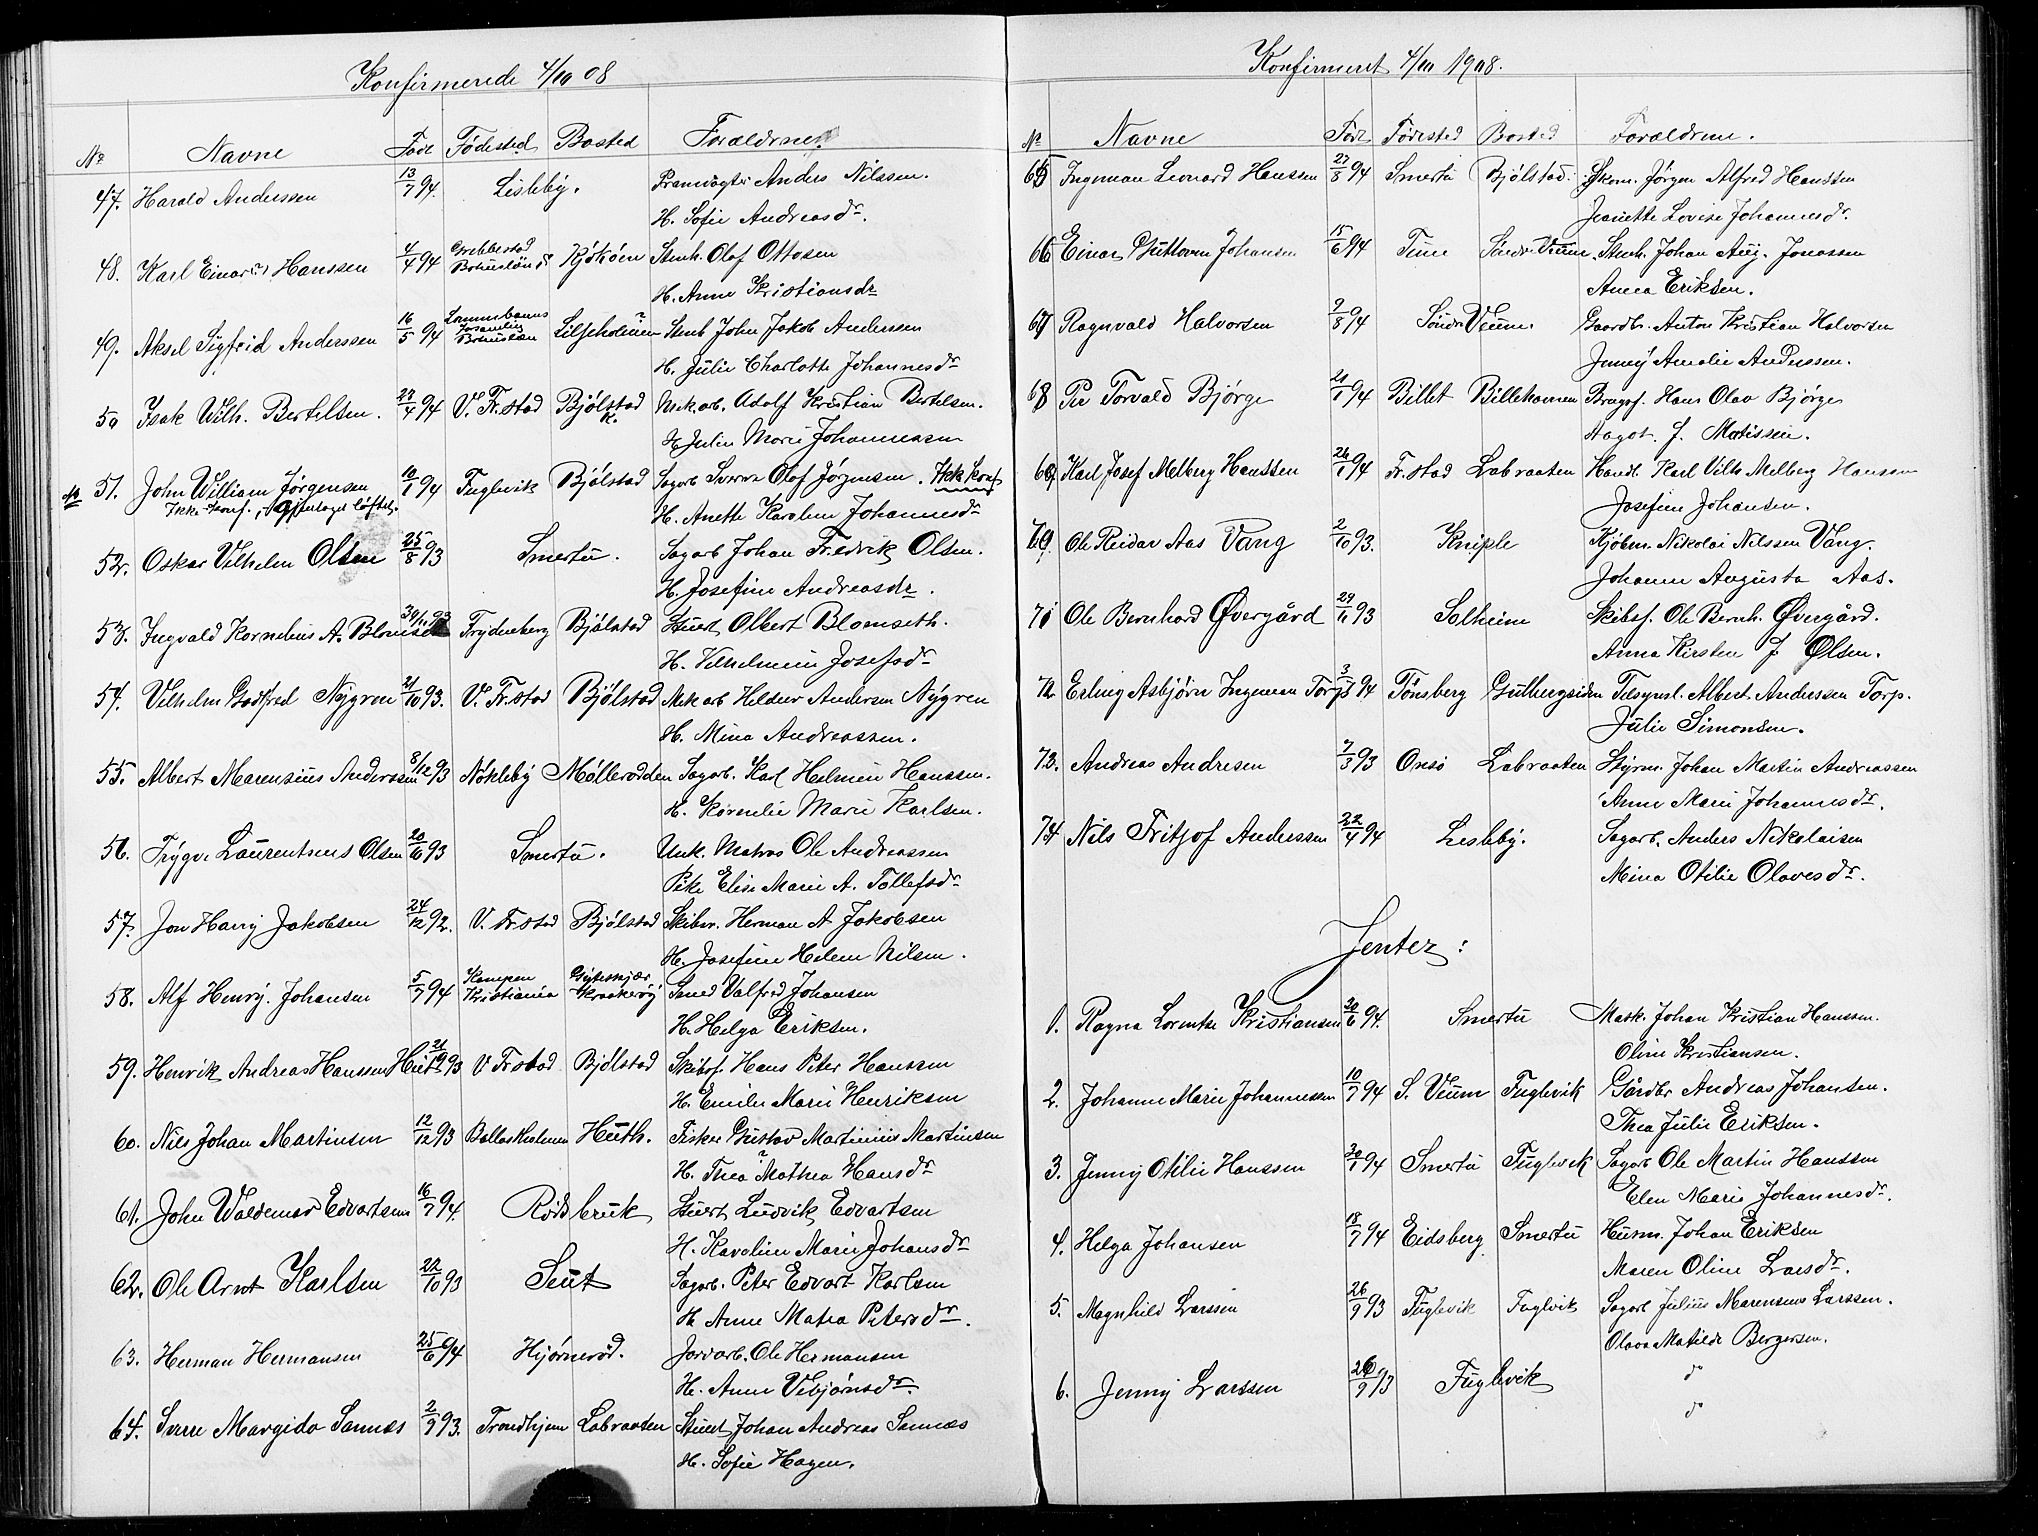 Konfirmerede 4/10 08
No Navne Født Fødested Bosted Forældrene
47. Harald Anderssen 13/7 94. Lisleby. Pramvogter Anders Nilssen.
H. Sofie Andreasdr.
48. Karl Einar Hanssen 4/4 94 Grebbestad Bohuslän Kjøkøen Stenh. Olof Ottosen
H. Anna Kristiansdr
49. Aksel Sigfrid Anderssen 16/5 94 Bohuslän Liljeholmen Stenh John Jakob Anderssen
H. Julie Charlotte Johannesdr
50 Isak Wilh. Bertelsen. 23/4 94 V. Fr.stad Bjølstad K. Mek.arb. Adolf Kristian Bertelsen.
H Julie Marie Johannessen
No 51. John William Jørgensen 10/1 94 Fuglevik Bjølstad Sagarb Sverre Olof Jørgensen. Ikke konf
Ikke konf., løftet.
H. Anette Karoline Johannesdr
52. Oskar Vilhelm Olsen 25/8 93 Smertu. Sagarb Johan Fredrik Olsen.
H. Josefine Andreasdr.
53. Ingvald Kornelius A. Blomseth 30/11 93 Frydenberg Bjølstad Stuert Olbert Blomseth.
H. Vilhelmine Josefsdr
54. Vilhelm Godtfred Nygren 21/10 93. V. Fr.stad Bjølstad Mek arb Helder Andersen Nygren
H. Mina Andreassen.
55. Albert Marensius Anderssen 8/12 93 Nøkleby Møllerodden Sagarb. Karl Helmin Hanssen.
H. Kornelie Marie Karlsen.
56. Trygve Laurentsius Olsen 20/10 93 Smertu. Unk. Matros Ole Andreassen
Pike Elise Marie A. Tollefsdr
57. Jon Harry Jakobsen 24/12 92. V. Fr.stad Bjølstad Skibsr. Herman A Jakobsen
H. Josefine Helene Nilsen.
58. Alf Henry. Johansen 5/7 94 Kampen Kristiania Gydeskjær Kraakerøy Smed Valfred Johansen
H. Helga Eriksen.
59. Henrik Andreas Hanssen Huth 21/12 93 V Fr.stad Bjølstad Skibsf. Hans Peter Hanssen
H. Emilie Marie Henriksen
60. Nils Johan Martinsen 12/12 93 Huth. Fisker Gustav Martinius Martinsen
H. Thea ? Mathea Hansdr
61. John Waldemar Edvartsen 16/7 94. Rødsbruk Stuert Ludvik Edvartsen
H. Karoline Marie Johansdr
62. Ole Arnt Karlsen 22/10 93 Seut Sagarb. Peter Edvart Karlsen
H. Anne Matea Petersdr.
63. Herman Hermansen 25/6 94 Hjørnerød. Jordarb. Ole Hermansen
H. Anne Vebjørnsdr.
64. Sverre Margido Sannæs 2/9 93. Trondhjem Labraaten Stuert Johan Andreas Sannæs
H. Sofie Hagen.
Konfirmeret 4/10 1908.
No Navne Født Fødested Bosted Forældrene.
65 Ingeman Leonard Hanssen 27/8 94 Smertu Bjølstad. Skom. Jørgen Alfred Hanssen
Jeanette Lovise Johannesdr.
66 Einar Guttorm Johansen 15/6 94 Tune Søndr. Veum. Stenh. Johan Aug. Jonassen
Anna Eriksen.
67 Ragnvald Halvorsen 9/8 94 Søndr Veum. Gaardbr. Anton Kristian Halvorsen
Jenny Amalie Anderssen.
68 Per Torvald Bjørge 21/1 94 Billet Billehavnen Brugsf. Hans Olav Bjørge
Dagot. J. Matissen.
69 Karl Josef Melberg Hanssen 26/1 94 Fr.stad Labraaten Handl. Karl Vilh Melberg Hanssen
Josefine Johansen.
70. Ole Reidar Aas Vang 2/10 93. Kniple Kjøbm. Nikolai Nilssen Vang.
Johanne Augusta Aas.
71 Ole Bernhard Øvergård 29/11 93 Solheim Skibsf. Ole Bernh. Øvergård.
Anna Kirsten J Olsen.
72 Erling Asbjørn Ingeman Torp 3/3 94 Tønsberg Gutbergsiden Tilsynsl. Albert Anderssen Torp.
Julie Simonsen.
73. Andreas Andresen 7/3 93 Onsø Labraaten Styrm. Johan Martin Andreassen
Anne Marie Johannesdr.
74 Nils Fritjof Anderssen 22/4 94 Lisleby. Sagarb. Anders Nikolaisen
Mina Otilie Olavesdr.
Jenter:
1. Ragna Lorentse Kristiansen 20/6 94. Smertu Mask. Johan Kristian Hanssen.
Oline Kristiansen.
2. Johanne Marie Johannessen 10/7 94 S. Veum Fuglevik Gårdbr Andreas Johansen.
Thea Julie Eriksen.
3. Jenny Otilie Hanssen 30/1 94 Smertu Fuglevik Sagarb Ole Martin Hanssen
Elen Marie Johannesdr.
4. Helga Johansen 18/7 94 Eidsberg Smertu Husm. Johan Eriksen
Maren Oline Larsdr.
5. Magnhild Larssen 26/9 93 Fuglevik Fuglvik Sagarb Julius Marensius Larssen.
Olava Matilde Bergersen.
6. Jenny Larssen 26/9 93 Fuglevik do
do